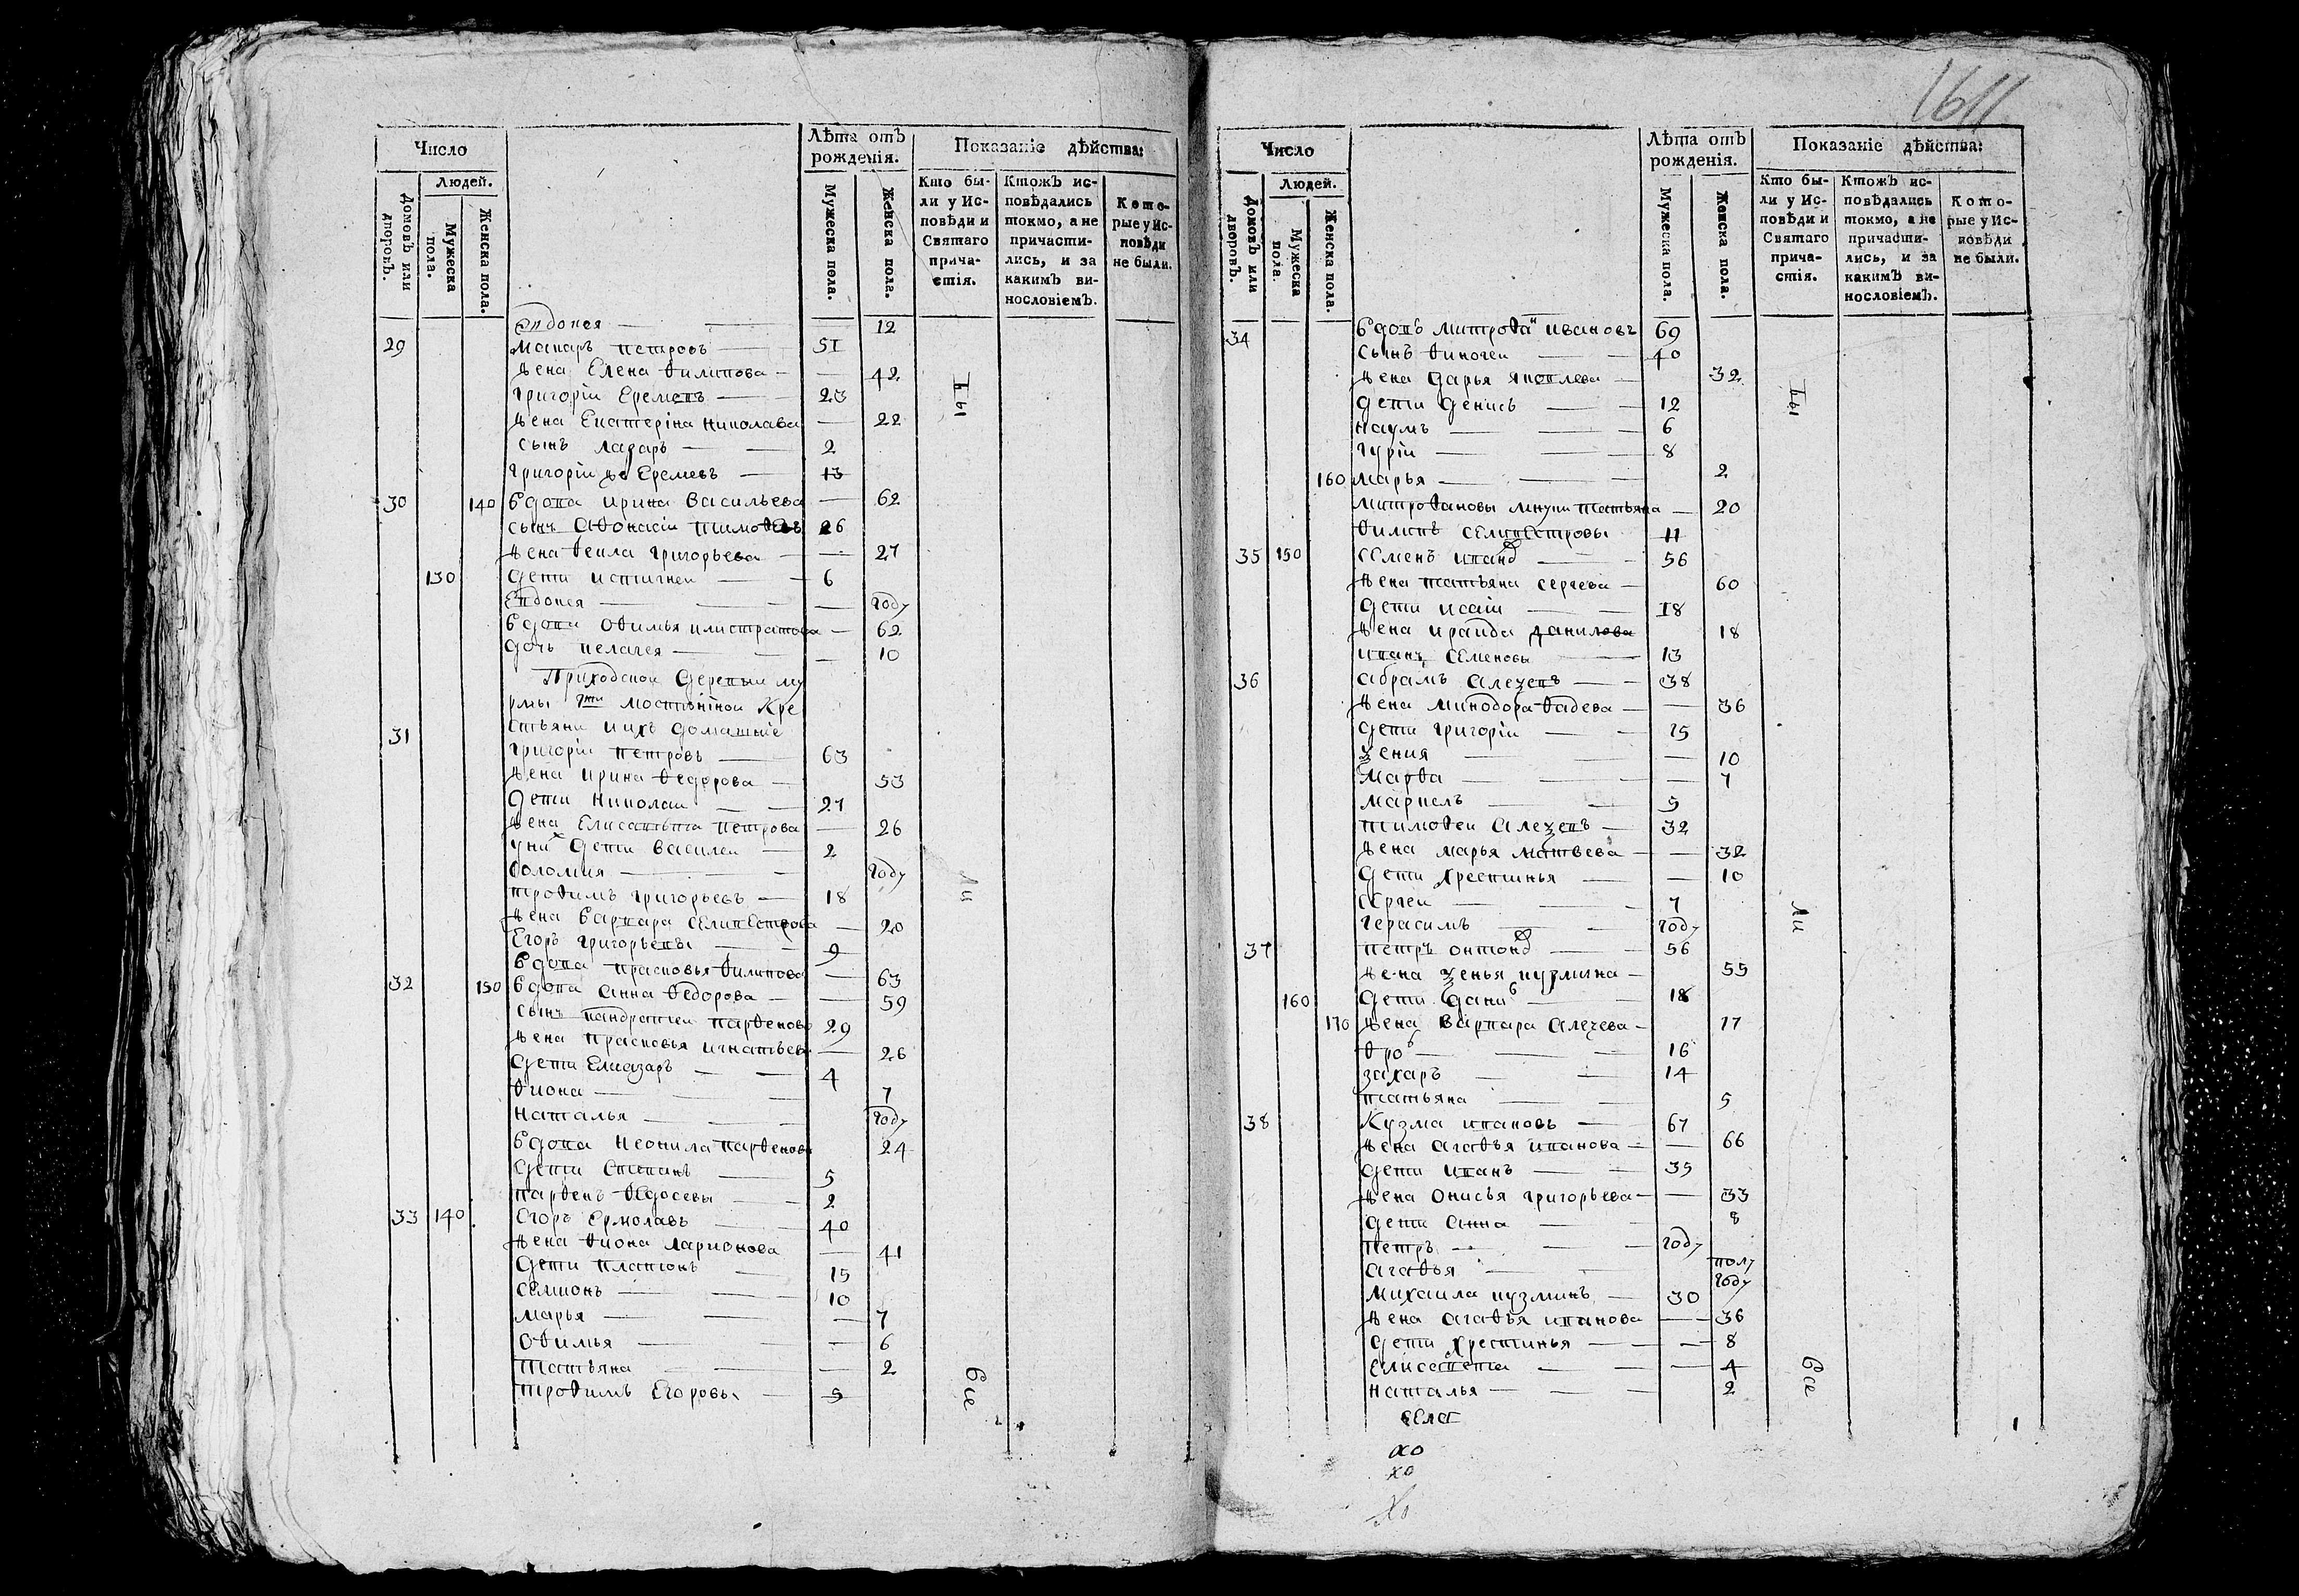 1611
Число
Лѣта отъ рожденія.
Показаніе дѣйства:
Людей.
Домовъ или дворовъ.
Мужеска пола.
Женска пола.
Мужеска пола.
Женска пола.
Кто были у Исповѣди и Святаго причастія.
Ктожъ исповѣдались токмо, а не причастились, и за какимъ винословіемъ.
Которые у Исповѣди не были.
Евдокея — 12
29 Макаръ Петровъ — 51
Жена Елена Филипова — 42
Григоріи Еремевъ — 23
Жена Екатеріна Николава — 22
Сынъ Лазаръ — 2
Григоріи же Еремевъ — 13
30 140 Вдова Ирина Васильева — 62
Сынъ Афонасіи Тимофевъ 26
Жена Фекла Григорьева — 27
130 Дети Истигнеи — 6
Евдокея — году
Вдова Офимья Илистратова — 62
Дочь Пелагея — 10
Приходской Деревни
Мостинінои Кре
стьяни и ихъ домашніе
31
Григоріи Петровъ — 63
Жена Ирина Федорова — 53
Дети Николаи — 27
Жена Елисавѣта Петрова — 26
У них дети Василеи — 2
Соломия — году
Трофимъ Григорьевъ — 18
Жена Варвара Селивестрова — 20
Егоръ Григорьевы — 9
Вдова Прасковья Филипова — 63
32 150 Вдова Анна Федорова — 59
Сынъ Пандратеи Парфеновъ 29
Жена Прасковья Игнатьева — 26
Дети Елиазаръ — 4
Фиона — 7
Наталья — году
Вдова Неонила Парфенова 24
Дети Степанъ — 5
Парфенъ Федосевы — 2
33 140 Егоръ Ермолавъ — 40
Жена Фиона Ларионова — 41
Дети Платонъ — 15
Семионъ — 10
Марья — 7
Офимья — 6
Татьяна — 2
Трофимъ Егоровы — 5
Бы
Ли
Все
Число
Лѣта отъ рожденія.
Показаніе дѣйства:
Людей.
Домовъ или дворовъ.
Мужеска пола.
Женска пола.
Мужеска пола.
Женска пола.
Кто были у Исповѣди и Святаго причастія.
Ктожъ исповѣдались токмо, а не причастились, и за какимъ винословіемъ.
Которые у Исповѣди не были.
34 Вдовъ Митрофан Ивановъ 69
Сынъ Финогеи — 40
Жена Дарья Яковлева — 32
Дети Денисъ — 12
Наумъ — 6
Гуріи — 8
160 Марья — 2
Митрофановы внуки Татьяна — 20
Филипъ Селивестровы 11
35 150 Семенъ Иванов — 56
Жена Татьяна Сергева — 60
Дети Исаіи — 18
Жена Ираида Данилова 18
Иванъ Семеновы — 13
36 Абрамъ Алексевъ — 38
Жена Минодора Фадева — 36
Дети Григоріи — 15
Ѯения — 10
Марфа — 7
Маркелъ — 5
Тимофеи Алеѯевъ — 32
Жена Марья Матвѣева — 32
Дети Хрестинья — 10
Сергеи — 7
Герасимъ — году
37 Петръ Онтонов — 56
Жена Ѯенья Кузмина — 55
160 Дети — 18
170 Жена Варвара Алеѯева — 17
16
Захаръ — 14
Татьяна — 5
38 Кузма Ивановъ — 67
Жена Агафья Иванова — 66
Дети Иванъ — 35
Жена Онисья Григорьева — 33
Дети Анна — 8
Петръ — году
Агафья — полу году
Михаила Кузминъ — 30
Жена Агафья Иванова — 36
Дети Хрестинья — 8
Елисавета — 4
Наталья — 2
Бы
Ли
Все